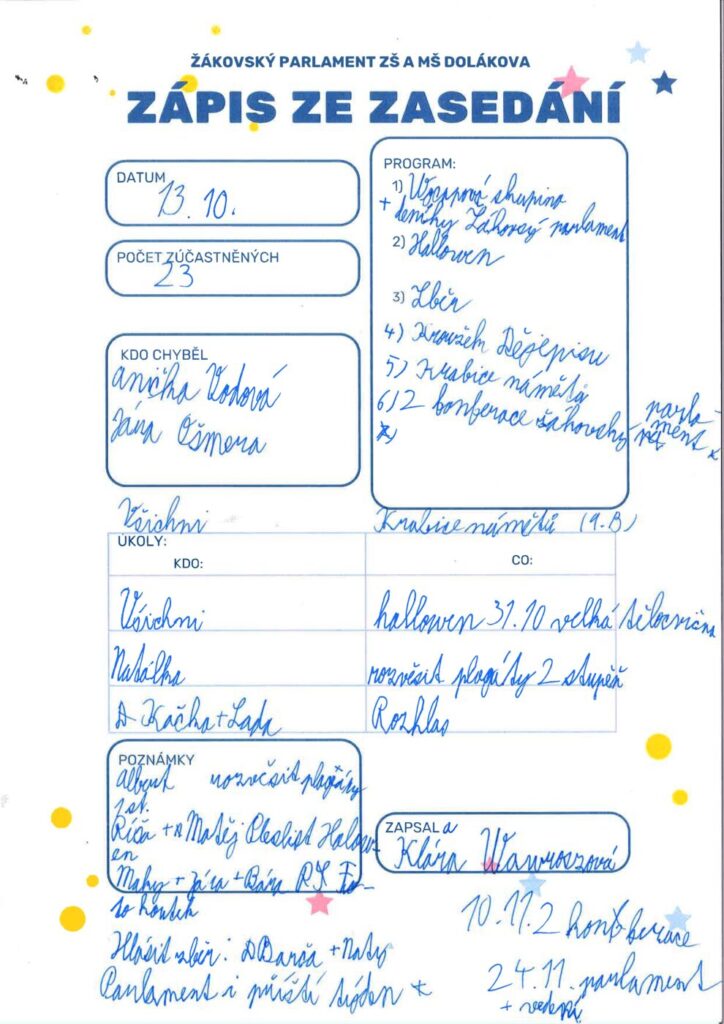 ŽÁKOVSKÝ PARLAMENT ZŠ A MŠ DOLÁKOVA
ZÁPIS ZE ZASEDÁNÍ
DATUM
13. 10.
POČET ZÚČASTNĚNÝCH
23
KDO CHYBĚL
Anička Vodová
Jára Ošmera
PROGRAM:
1) skupina
+ deníky Žákovský parlament
2) Hallowen
3) Sběr
4) Kroužek Dějepisu
5) Krabice námětů
6) 2 konferace žákovský parlament
Všichni Krabice námětů (9.B)
ÚKOLY:
KDO: CO:
Všichni hallowen 31.10 velká tělocvična
Natálka rozvěsit plagáty 2 stupěň
Kačka + Lada Rozhlas
POZNÁMKY
Albert rozvěsit plagáty
1 st.
Ríša + Matěj Pleslist Halowen
Maky + Jára + Bára Foto koutek
Hlásit sběr: Barča + Naty
Parlament i příští týden
ZAPSAL a
Klára Wawroszová
10.11. 2 konferace
24.11. parlament
+ vedení